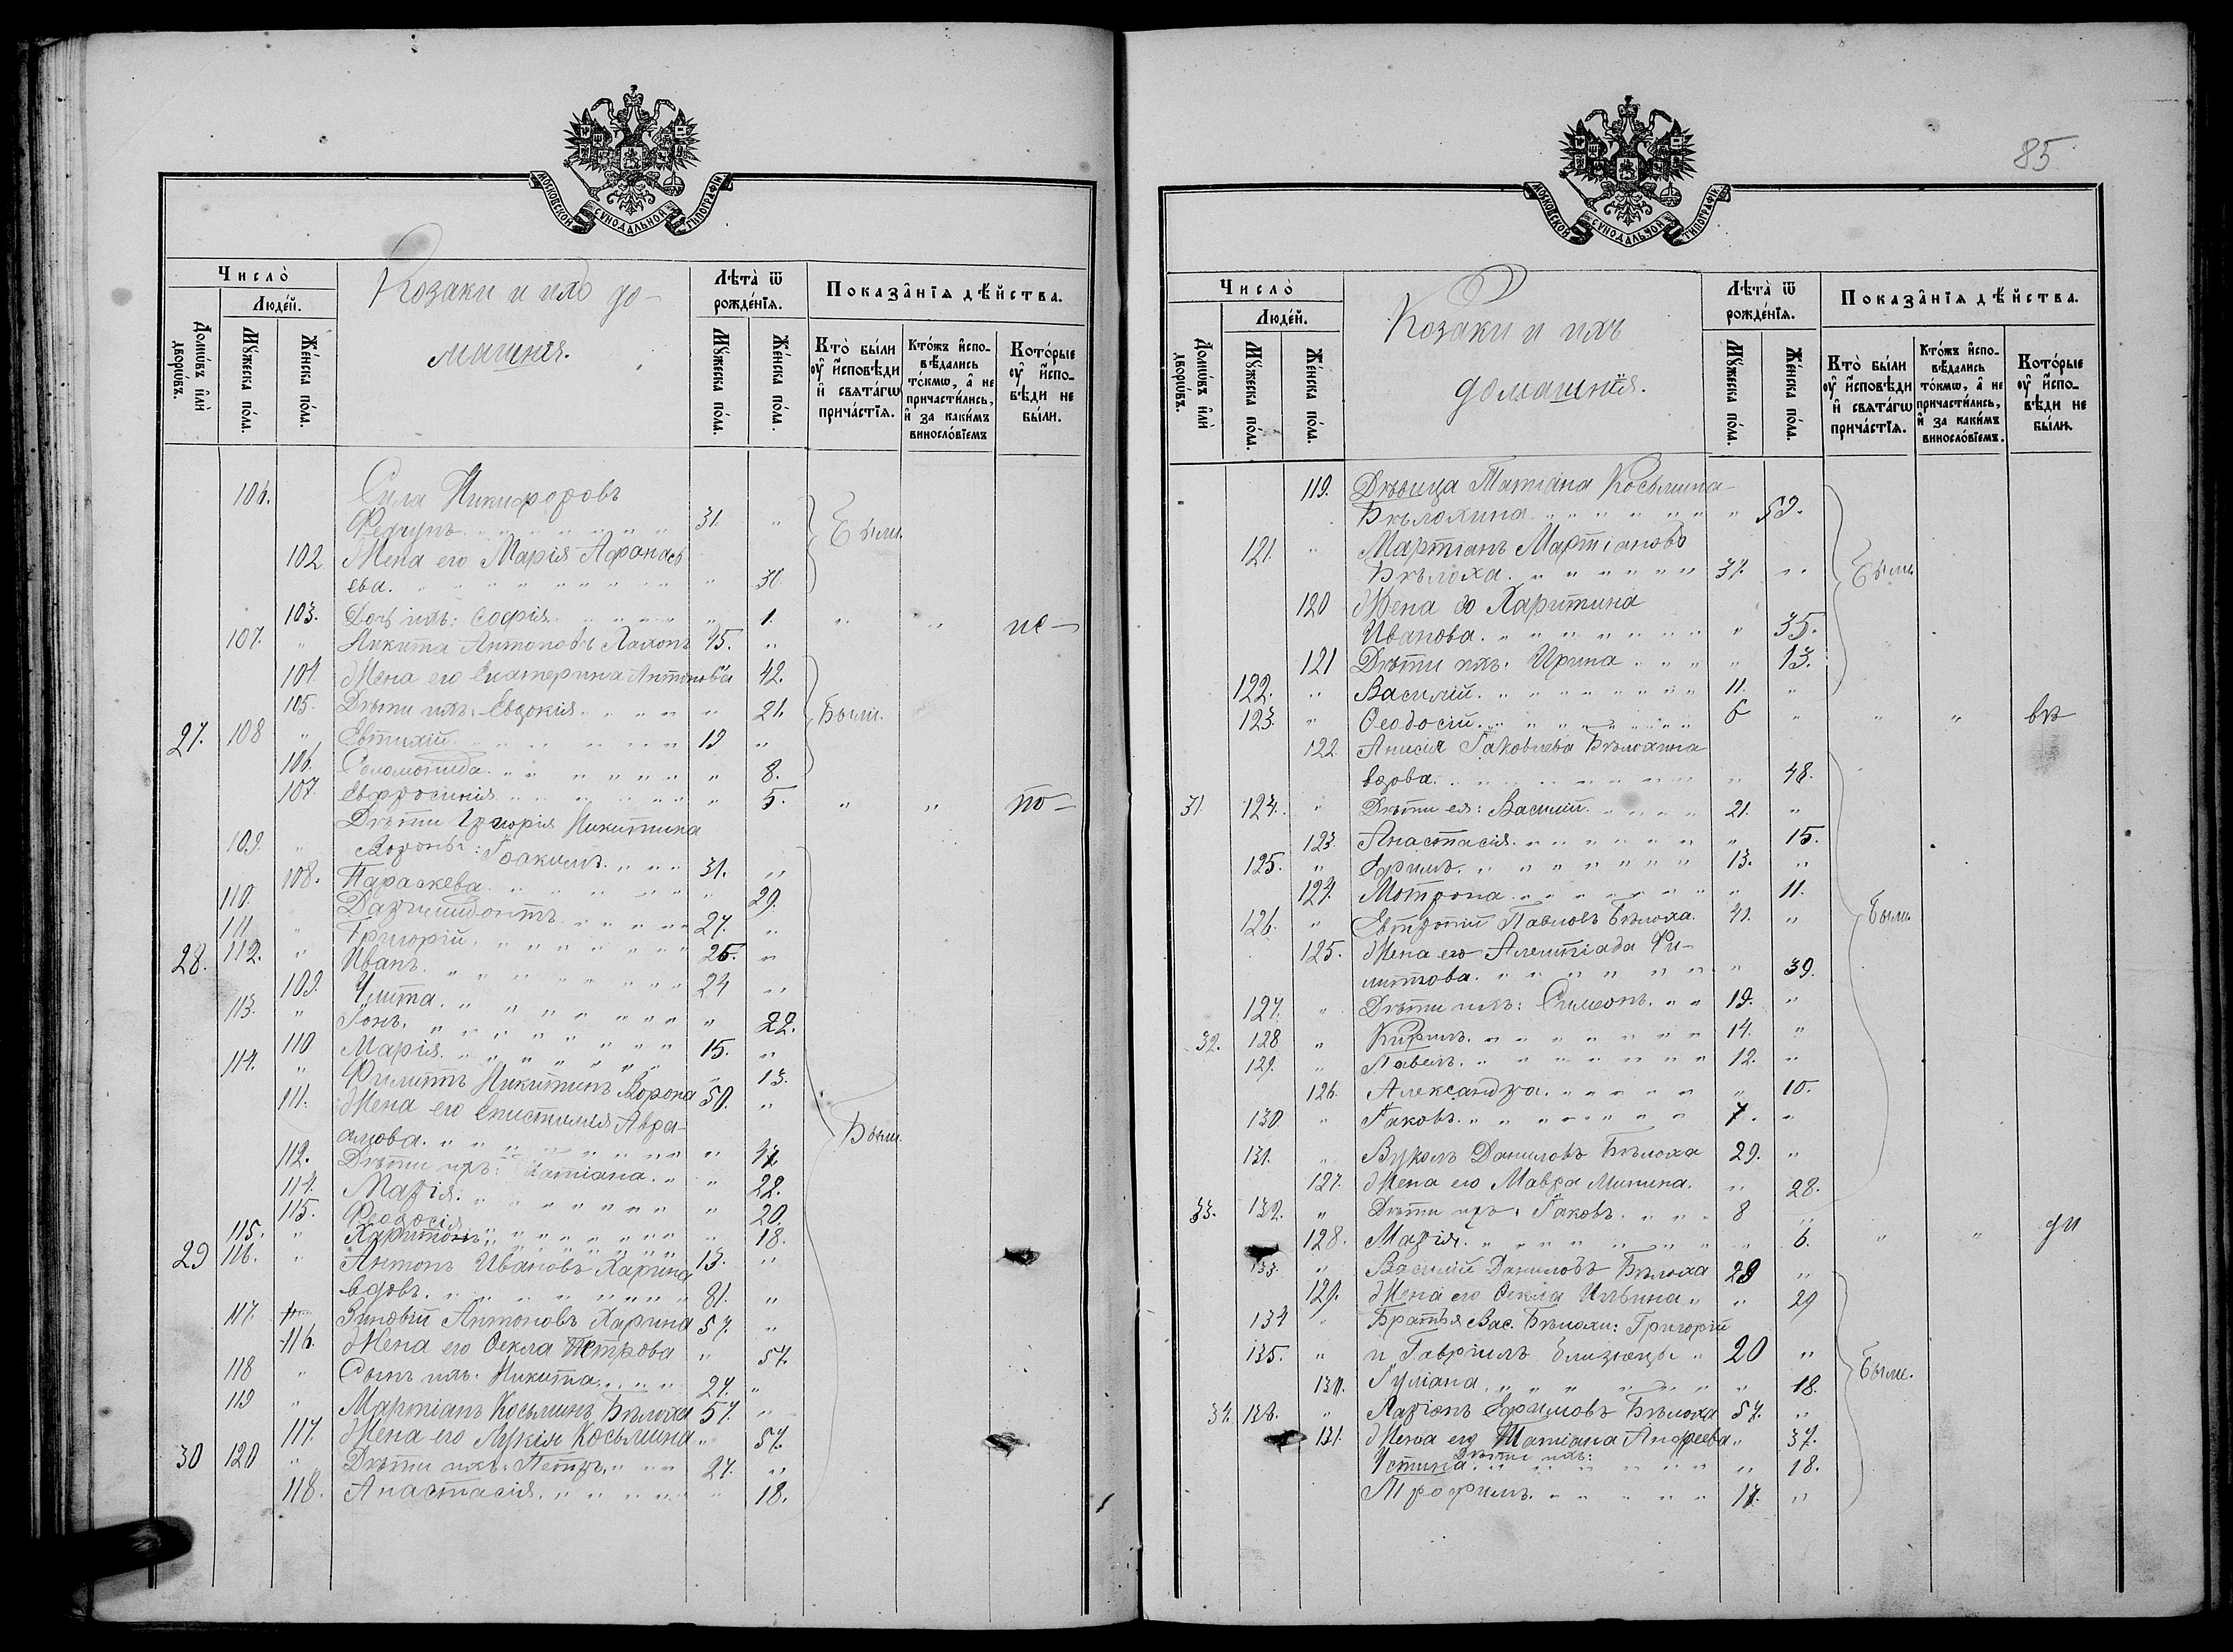 МОСКОВСКОЙ СУНОДАЛЬНОЙ ТИПОГРАФІИ
Число̀
Домѡ́въ и҆лѝ дворѡ́въ.
Люде́й.
Мꙋ́жеска по́ла.
Же́нска по́ла.
Козаки и ихъ до-
машнія.
Лѣта̀ ѿ рожде́нїѧ.
Мꙋ́жеска по́ла.
Же́нска по́ла.
Показа̑нїѧ дѣ́йства.
Кто̀ бы́ли ᲂу҆ и҆сповѣ́ди и҆ свѧта́гѡ прича́стїѧ.
Кто́жъ и҆спо-вѣ́дались то́кмѡ, а҆ не причасти́лись, и҆ за каки́мъ винosло́вїемъ
Кото́рые ᲂу҆ и҆спо-вѣ́ди не бы́ли.
106. Сила Никифоровъ
Федунъ 31. "
Были.
102 Жена его Марія Афанась
ева. " 31
103. Дочь ихъ: Софія " 1. " " не-
107. " Никита Антоновъ 45. "
104. Жена его Екатерина Антонова 42.
105. Дѣти ихъ: Евдокія " 21.
Были.
27. 108 " Евтихій 19 "
106. Соломонида " 8.
107. Евфросинія " 5. " " по-
Дѣти Никитина
109. " Вороны: Іоакимъ 31. "
108. Параскева " 29.
110. 27. "
111 " Григорій 25. "
28. 112. " Иванъ. 24 "
109. Улита. " 22.
113. " Іонъ. 15. "
110 Марія. " 13.
114. " Филиппъ Никитинъ Ворона 50. "
111. Жена его Епистимія Авра-
амова. "
Были
112. Дѣти ихъ: Татіана. " 22.
114. Марія. " 20.
115. Феодосія " 18.
115. " Харитонъ 13. "
29 116. " Антонъ Ивановъ Харина
вдовъ. 81. "
117. Зиновій Антоновъ Харина 57. "
116. Жена его Ѳекла Петрова " 57.
118 " Сынъ ихъ: Никита 27. "
119 " Мартіанъ Косьминъ Бѣлоха 57. "
117. Жена его Лукія Косьмина " 57.
30 120 " Дѣти ихъ: Петръ. 27. "
118. Анастасія. " 18.
85
МОСКОВСКОЙ СУНОДАЛЬНОЙ ТИПОГРАФІИ
Число̀
Домѡ́въ и҆лѝ дворѡ́въ.
Люде́й.
Мꙋ́жеска по́ла.
Же́нска по́ла.
Козаки и ихъ
домашнія.
Лѣта̀ ѿ рожде́нїѧ.
Мꙋ́жеска по́ла.
Же́нска по́ла.
Показа̑нїѧ дѣ́йства.
Кто̀ бы́ли ᲂу҆ и҆сповѣ́ди и҆ свѧта́гѡ прича́стїѧ.
Кто́жъ и҆спо-вѣ́дались то́кмѡ, а҆ не причасти́лись, и҆ за каки́мъ винosло́вїемъ.
Кото́рые ᲂу҆ и҆спо-вѣ́ди не бы́ли.
119. Дѣвица Татіана Косьмина-
Бѣлохина " 59.
121. " Мартіанъ Мартіановъ
Бѣлоха. 37. "
Были
120 Жена его Харитина
Иванова. " 35.
121 Дѣти ихъ: Ирина " 13.
122. " Василій. 11. "
123. " Ѳеодосій. 6 " " " въ
122. Анисія Іаковлева Бѣлохина
вдова. " 48.
31 124. " Дѣти ея: Василій. 21. "
123. Анастасія. " 15.
125. " Ефимъ. 13. "
124. Мотрона. " 11.
126. " Евтропій Павловъ Бѣлоха. 41. "
Были.
125. Жена его Фи-
липпова. " 39.
127. " Дѣти ихъ: Симеонъ. 19. "
32. 128 " Кирилъ. 14. "
129. " Павелъ. 12. "
126. Александра. " 10.
130 " Іаковъ. 7. "
131. " Вуколъ Даниловъ Бѣлоха 29. "
127. Жена его Мавра Минина. " 28.
33. 132. " Дѣти ихъ: Іаковъ. 8 "
128. Марія. " 6. " " ди
133 " Василій Даниловъ Бѣлоха 29 "
129. Жена его Ѳекла Ильина " 29
134 " Братья Вас. Бѣлохи: Григорій
135. " и Гавріилъ близнецы 20 "
Были.
130. Іуліана " 18.
34. 136. " Ларіонъ Ефимовъ Бѣлоха 57. "
131. Жена его Татіана Андреева " 37.
Дѣти ихъ:
Устина. " 18.
Трофимъ. 17. "